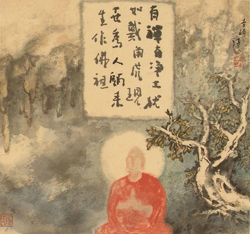 有禪有淨土犹
如戴角虎現
世為人師来
生作佛祖